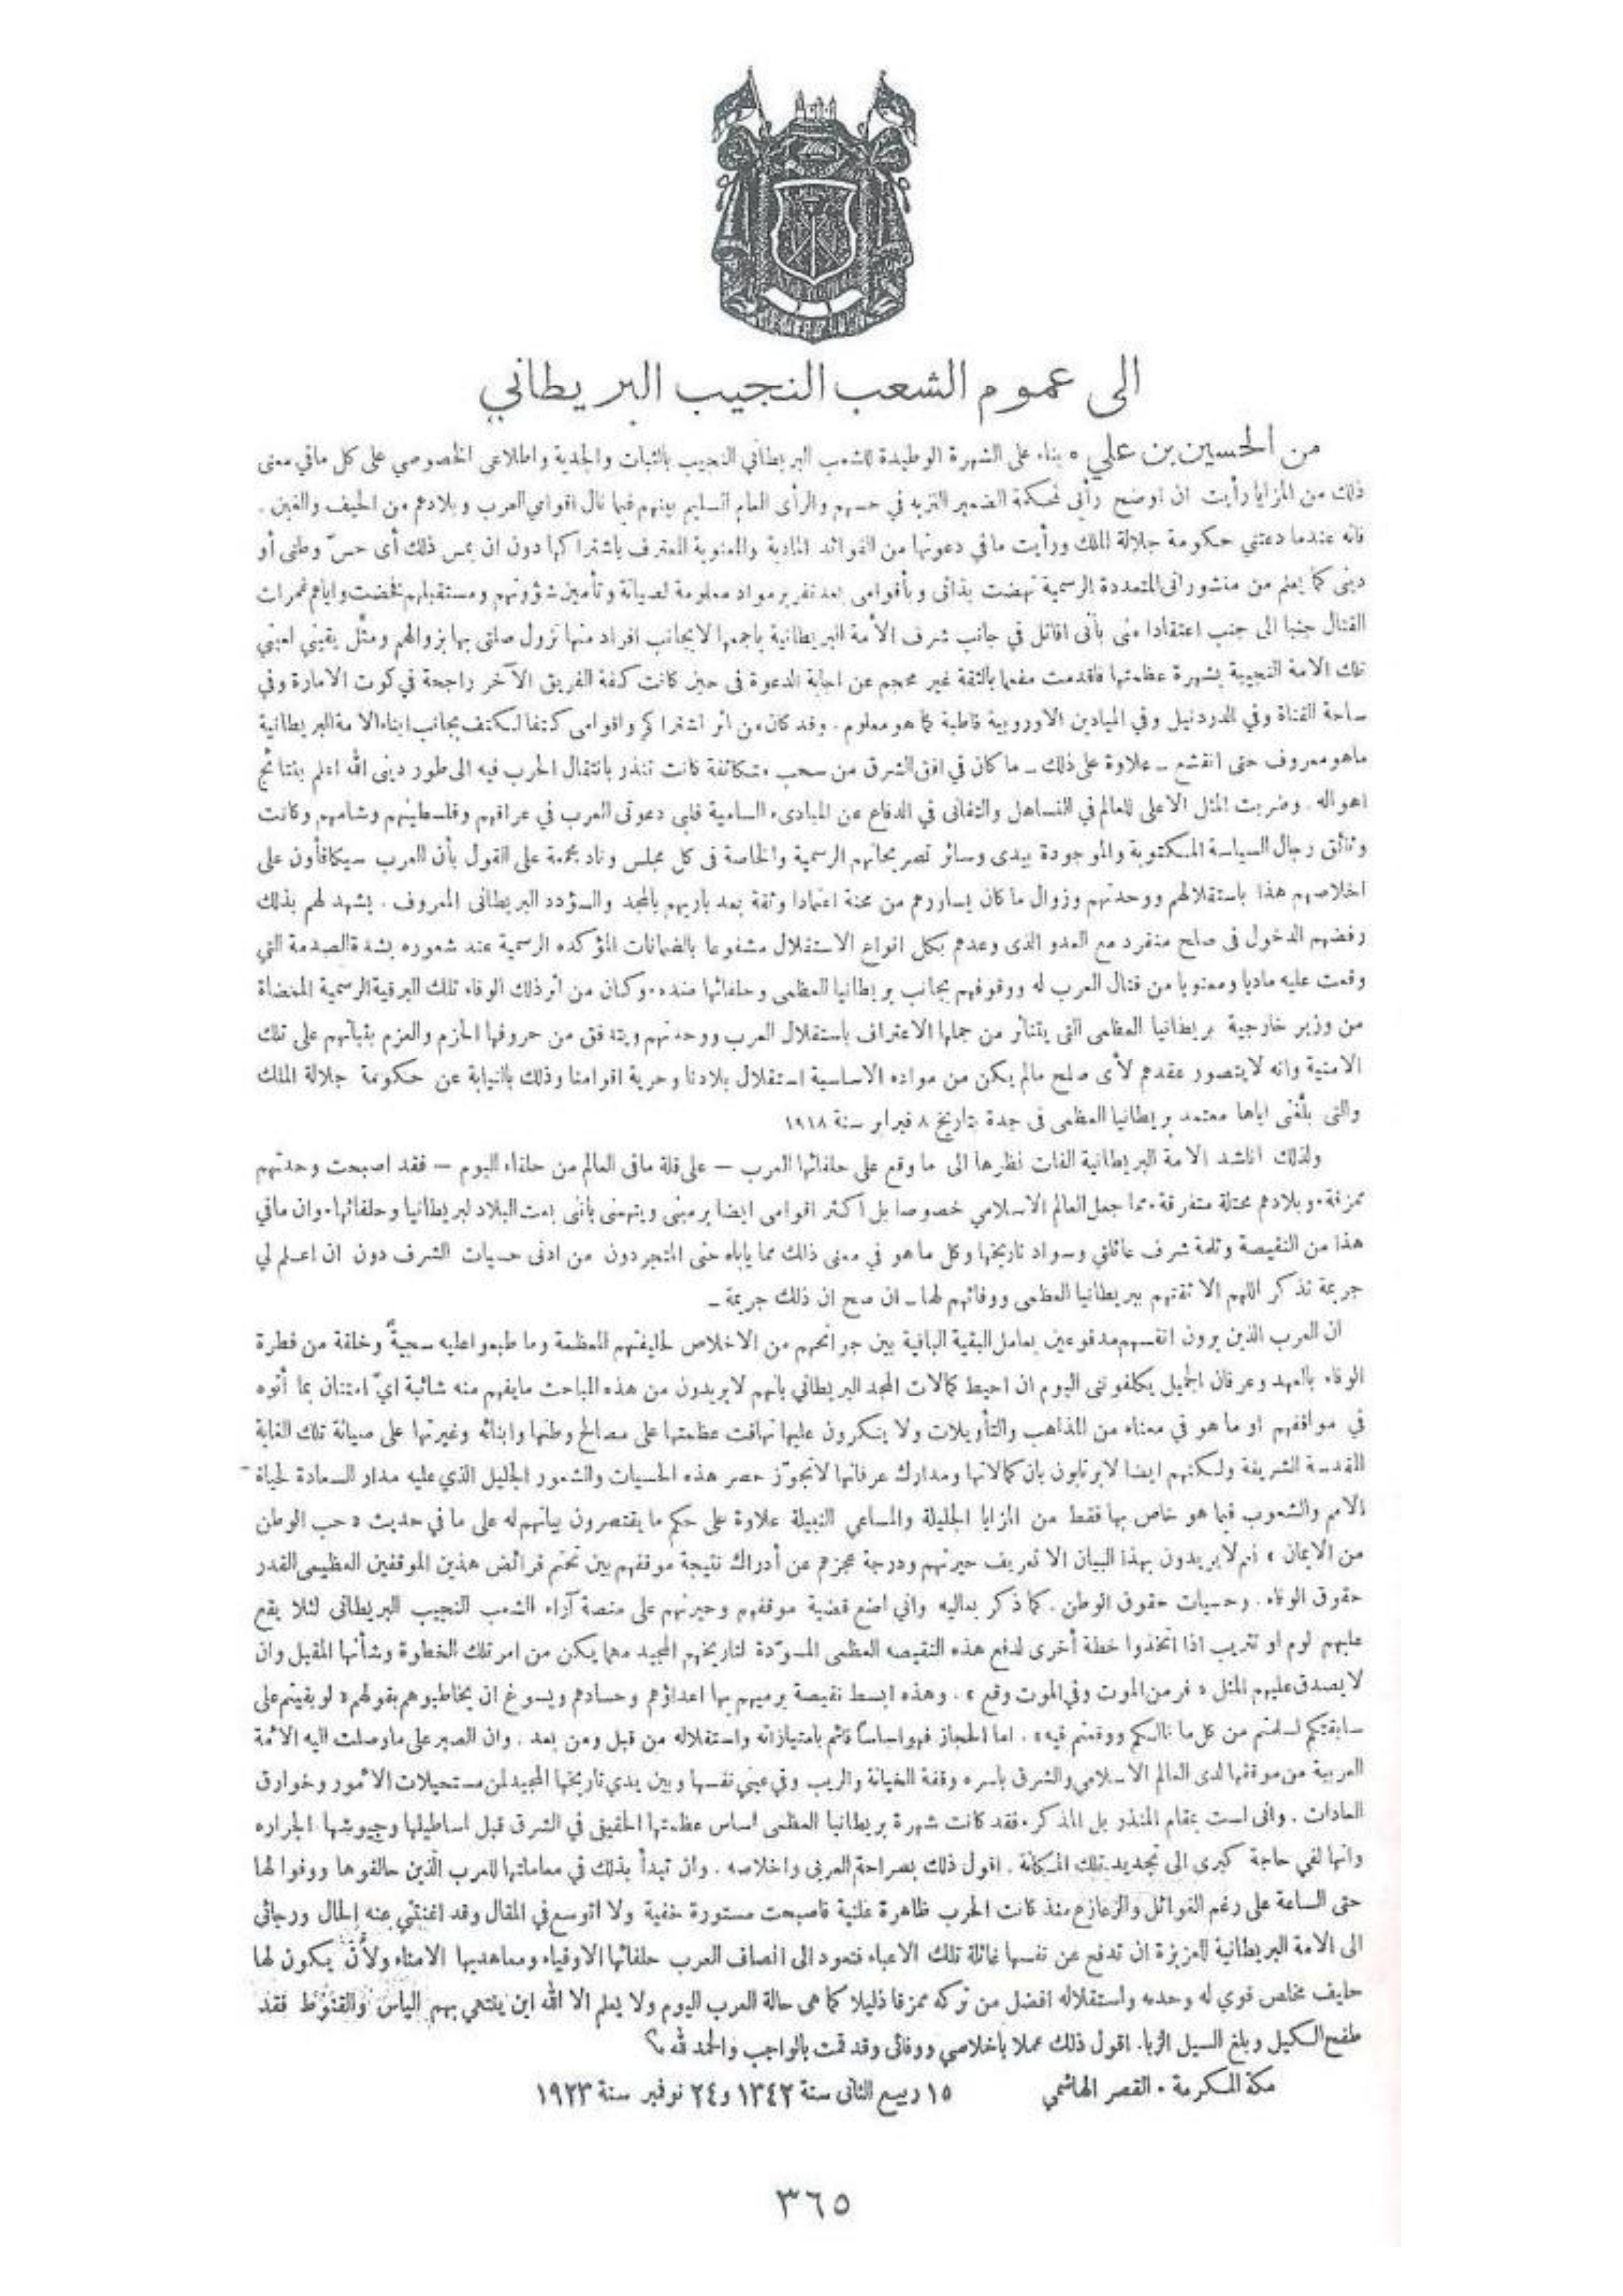 الى عموم الشعب النجيب البريطاني
من الحسين بن علي ٭ بناء على الشهرة الوطيدة للشعب البريطاني النجيب بالثبات والجدية واطلاعى الخصوصي على كل مافي معنى
ذلك من المزايا رأيت ان اوضح رأيى لمحكمة الضمير النزيه في حسهم والرأى العام السليم بينهم فيما نال اقوامي العرب وبلادهم من الحيف والغبن .
فانه عندما دعتني حكومة جلالة الملك ورأيت مافي دعوتها من الفوائد المادية والمعنوية المعترف باشتراكها دون ان يمس ذلك أى حسّ وطنى أو
دينى كما يعلم من منشوراتى المتعددة الرسمية نهضت بذاتى وبأقوامى بعد تقرير مواد معلومة لصيانة وتأمين شؤونهم ومستقبلهم فخضت واياهم غمرات
القتال جنبا الى جنب اعتقادا منى بأنى اقاتل في جانب شرف الأمة البريطانية باجمعها لابجانب افراد منها تزول صلتى بها بزوالهم ومثّل يقيني لعينى
تلك الامة النجيبة بشهرة عظمتها فاقدمت مفعما بالثقة غير محجم عن اجابة الدعوة فى حين كانت كفة الفريق الآخر راجحة في كوت الامارة وفي
ساحة القناة وفي الدردنيل وفي الميادين الاوروبية قاطبة كما هو معلوم . وقد كان من اثر اشتراكى واقوامى كتفا لكتف بجانب ابناء الامة البريطانية
ماهو معروف حتى انقشع ـ علاوة على ذلك ـ ما كان في افق الشرق من سحب متكاثفة كانت تنذر بانتقال الحرب فيه الى طور دينى الله اعلم بنتائج
اهواله . وضربت المثل الاعلى للعالم في التساهل والتفانى في الدفاع عن المبادىء السامية فلبى دعوتى العرب في عراقهم وفلسطينهم وشامهم وكانت
وثائق رجال السياسة المكتوبة والموجودة بيدى وسائر تصريحاتهم الرسمية والخاصة فى كل مجلس وناد مجمعة على القول بأن العرب سيكافأون على
اخلاصهم هذا باستقلالهم ووحدتهم وزوال ما كان يساورهم من محنة اعتمادا وثقة بعد باريهم بالمجد والسؤدد البريطانى المعروف . يشهد لهم بذلك
رفضهم الدخول فى صلح منفرد مع العدو الذى وعدهم بكل انواع الاستقلال مشفوعا بالضمانات المؤكده الرسمية عند شعوره بشدة الصدمة التي
وقعت عليه ماديا ومعنويا من قتال العرب له ووقوفهم بجانب بريطانيا العظمى وحلفائها ضده . وكان من اثر ذلك الوفاء تلك البرقية الرسمية الممضاة
من وزير خارجية بريطانيا العظمى التى يتناثر من جملها الاعتراف باستقلال العرب ووحدتهم ويتدفق من حروفها الحزم والعزم بثباتهم على تلك
الامنية وانه لايتصور عقدهم لأى صلح مالم يكن من مواده الاساسية استقلال بلادنا وحرية اقوامنا وذلك بالنيابة عن حكومة جلالة الملك
والتى بلّغنى اياها معتمد بريطانيا العظمى فى جدة بتاريخ ٨ فبراير سنة ١٩١٨
ولذلك اناشد الامة البريطانية الفات نظرها الى ما وقع على حلفائها العرب – على قلة مافى العالم من حلفاء اليوم – فقد اصبحت وحدتهم
ممزقة . وبلادهم محتلة متفرقة . مما جعل العالم الاسلامي خصوصا بل اكثر اقوامى ايضا يرمينى ويتهمنى بأنى بعت البلاد لبريطانيا وحلفائها . وان مافي
هذا من النقيصة وثلمة شرف عائلتي وسواد تاريخها وكل ما هو في معنى ذالك مما يأباه حتى المتجردون من ادنى حسيات الشرف دون ان اعلم لي
جريمة تذكر اللهم الا ثقتهم ببريطانيا العظمى ووفائهم لها ـ ان صح ان ذلك جريمة ـ
ان العرب الذين يرون انفسهم مدفوعين بعامل البقية الباقية بين جوانحهم من الاخلاص لحليفتهم المعظمة وما طبعوا عليه سجيةً وخلقة من فطرة
الوفاء بالعهد وعرفان الجميل يكلفوننى اليوم ان احيط كمالات المجد البريطاني بأنهم لايريدون من هذه المباحث مايفهم منه شائبة ايّ امتنان بما أتوه
في مواقفهم او ما هو في معناه من المذاهب والتأويلات ولا ينكرون عليها تهافت عظمتها على مصالح وطنها وابنائه وغيرتها على صيانة تلك الغاية
المقدسة الشريفة ولكنهم ايضا لايرتابون بان كمالاتها ومدارك عرفانها لاتجوّز حصر هذه الحسيات والشعور الجليل الذي عليه مدار السعادة لحياة
الامم والشعوب فيما هو خاص بها فقط من المزايا الجليلة والمساعي النبيلة علاوة على حكم ما يقتصرون بيانهم له على ما في حديث « حب الوطن
من الايمان » نعم لايريدون بهذا البيان الا تعريف حيرتهم ودرجة عجزهم عن أدراك نتيجة موقفهم بين تحتم فرائض هذين الموقفين العظيمى القدر
حقوق الوفاء . وحسيات حقوق الوطن . كما ذكر بعاليه واني اضع قضية موقفهم وحيرتهم على منصة آراء الشعب النجيب البريطانى لئلا يقع
عليهم لوم او تثريب اذا اتخذوا خطة أخرى لدفع هذه النقيصه العظمى المسوّدة لتاريخهم المجيد مهما يكن من امر تلك الخطوة وشأنها المقبل وان
لا يصدق عليهم المثل « فر من الموت وفي الموت وقع » . وهذه ابسط نقيصة يرميهم بها اعداؤهم وحسادهم ويسوغ ان يخاطبوهم بقولهم « لو بقيتم على
سابقتكم لسلمتم من كل ما نالكم ووقعتم فيه » . اما الحجاز فهو اساساً قائم بامتيازاته واستقلاله من قبل ومن بعد . وان الصبر على ماوصلت اليه الأمة
العربية من موقفها لدى العالم الاسلامي والشرق باسره وقفة الخيانة والريب وفي عيني نفسها وبين يدي تاريخها المجيد لمن مستحيلات الأمور وخوارق
العادات . وانى لست بمقام المنذر بل المذكر . فقد كانت شهرة بريطانيا العظمى اساس عظمتها الحقيقى في الشرق قبل اساطيلها وجيوشها الجراره
وانها لفي حاجة كبرى الى تجديد تلك المكانة . اقول ذلك بصراحة العربى واخلاصه . وان تبدأ بذلك في معاملتها للعرب الذين حالفوها ووفوا لها
حتى الساعة على رغم الغوائل والزعازع منذ كانت الحرب ظاهرة علنية فاصبحت مستورة خفية ولا اتوسع في المقال وقد اغنتني عنه الحال ورجائى
الى الامة البريطانية العزيزة ان تدفع عن نفسها غائلة تلك الاعباء فتعود الى انصاف العرب حلفائها الاوفياء ومعاهديها الامناء ولأن يكون لها
حليف مخلص قوي له وحدته واستقلاله افضل من تركه ممزقا ذليلا كما هى حالة العرب اليوم ولا يعلم الا الله اين ينتهي بهم الياس والقنوط فقد
طفح الكيل وبلغ السيل الزبا . اقول ذلك عملا باخلاصي ووفائى وقد قمت بالواجب والحمد لله
مكة المكرمة . القصر الهاشمي ١٥ ربيع الثانى سنة ١٣٤٢ و٢٤ نوفبر سنة ١٩٢٣
٣٦٥